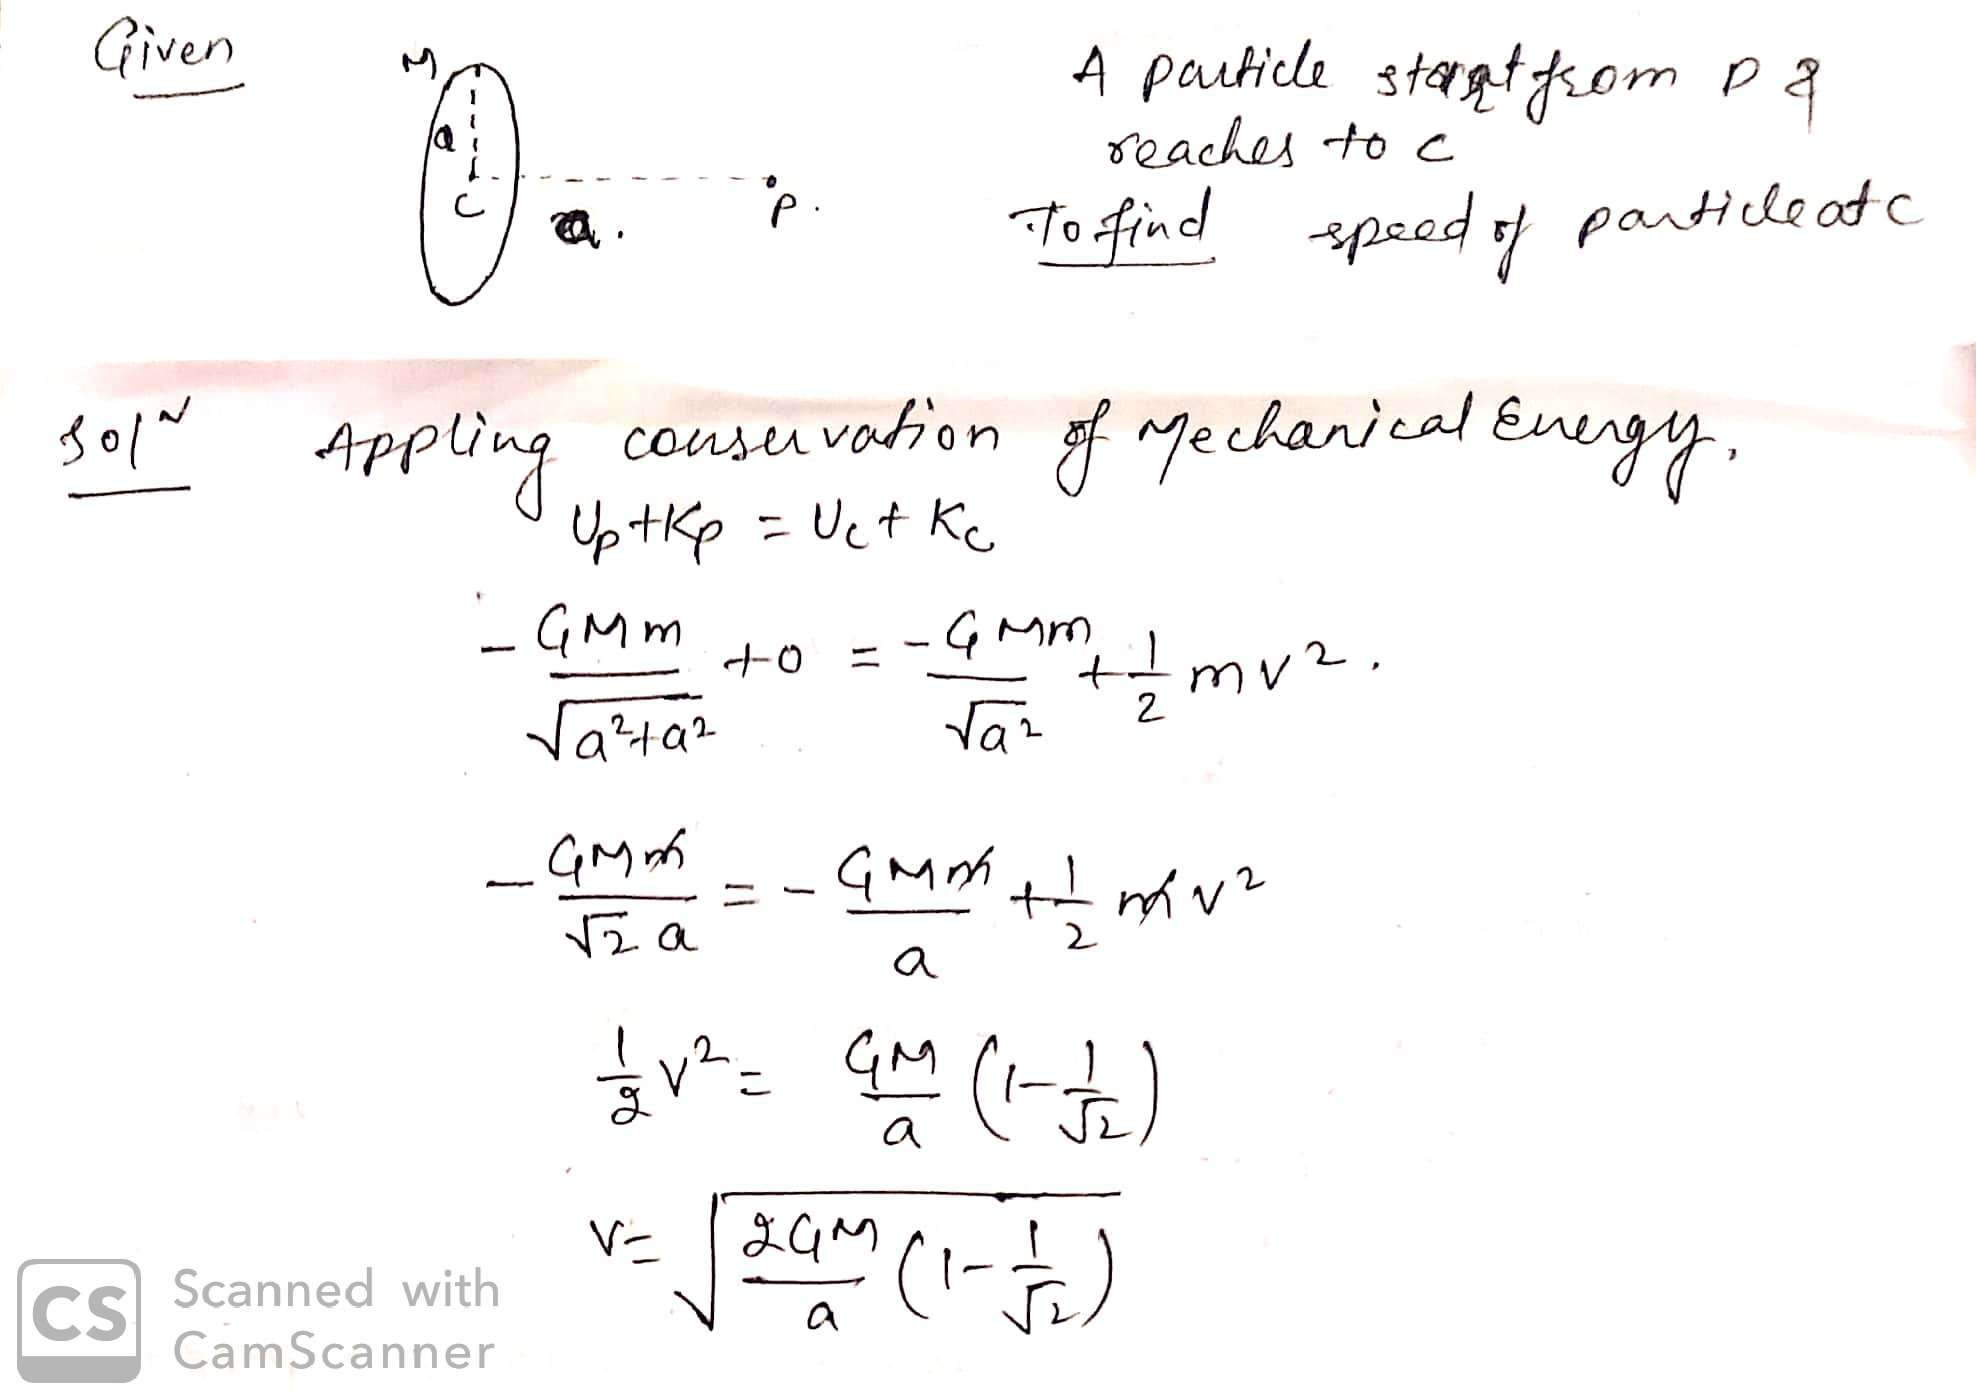 Given
M
a
C
a.
P.
A particle start from P &
reaches to c
To find speed of particle at c
Solⁿ Appling conservation of Mechanical Energy,
Up+Kp = Uc+Kc
-GMm/√a²+a² +0 = -GMm/√a² + 1/2 mv².
-GMm/√2 a = -GMm/a + 1/2 mv²
1/2 v² = GM/a (1-1/√2)
v= √2GM/a (1-1/√2)
CS Scanned with
CamScanner